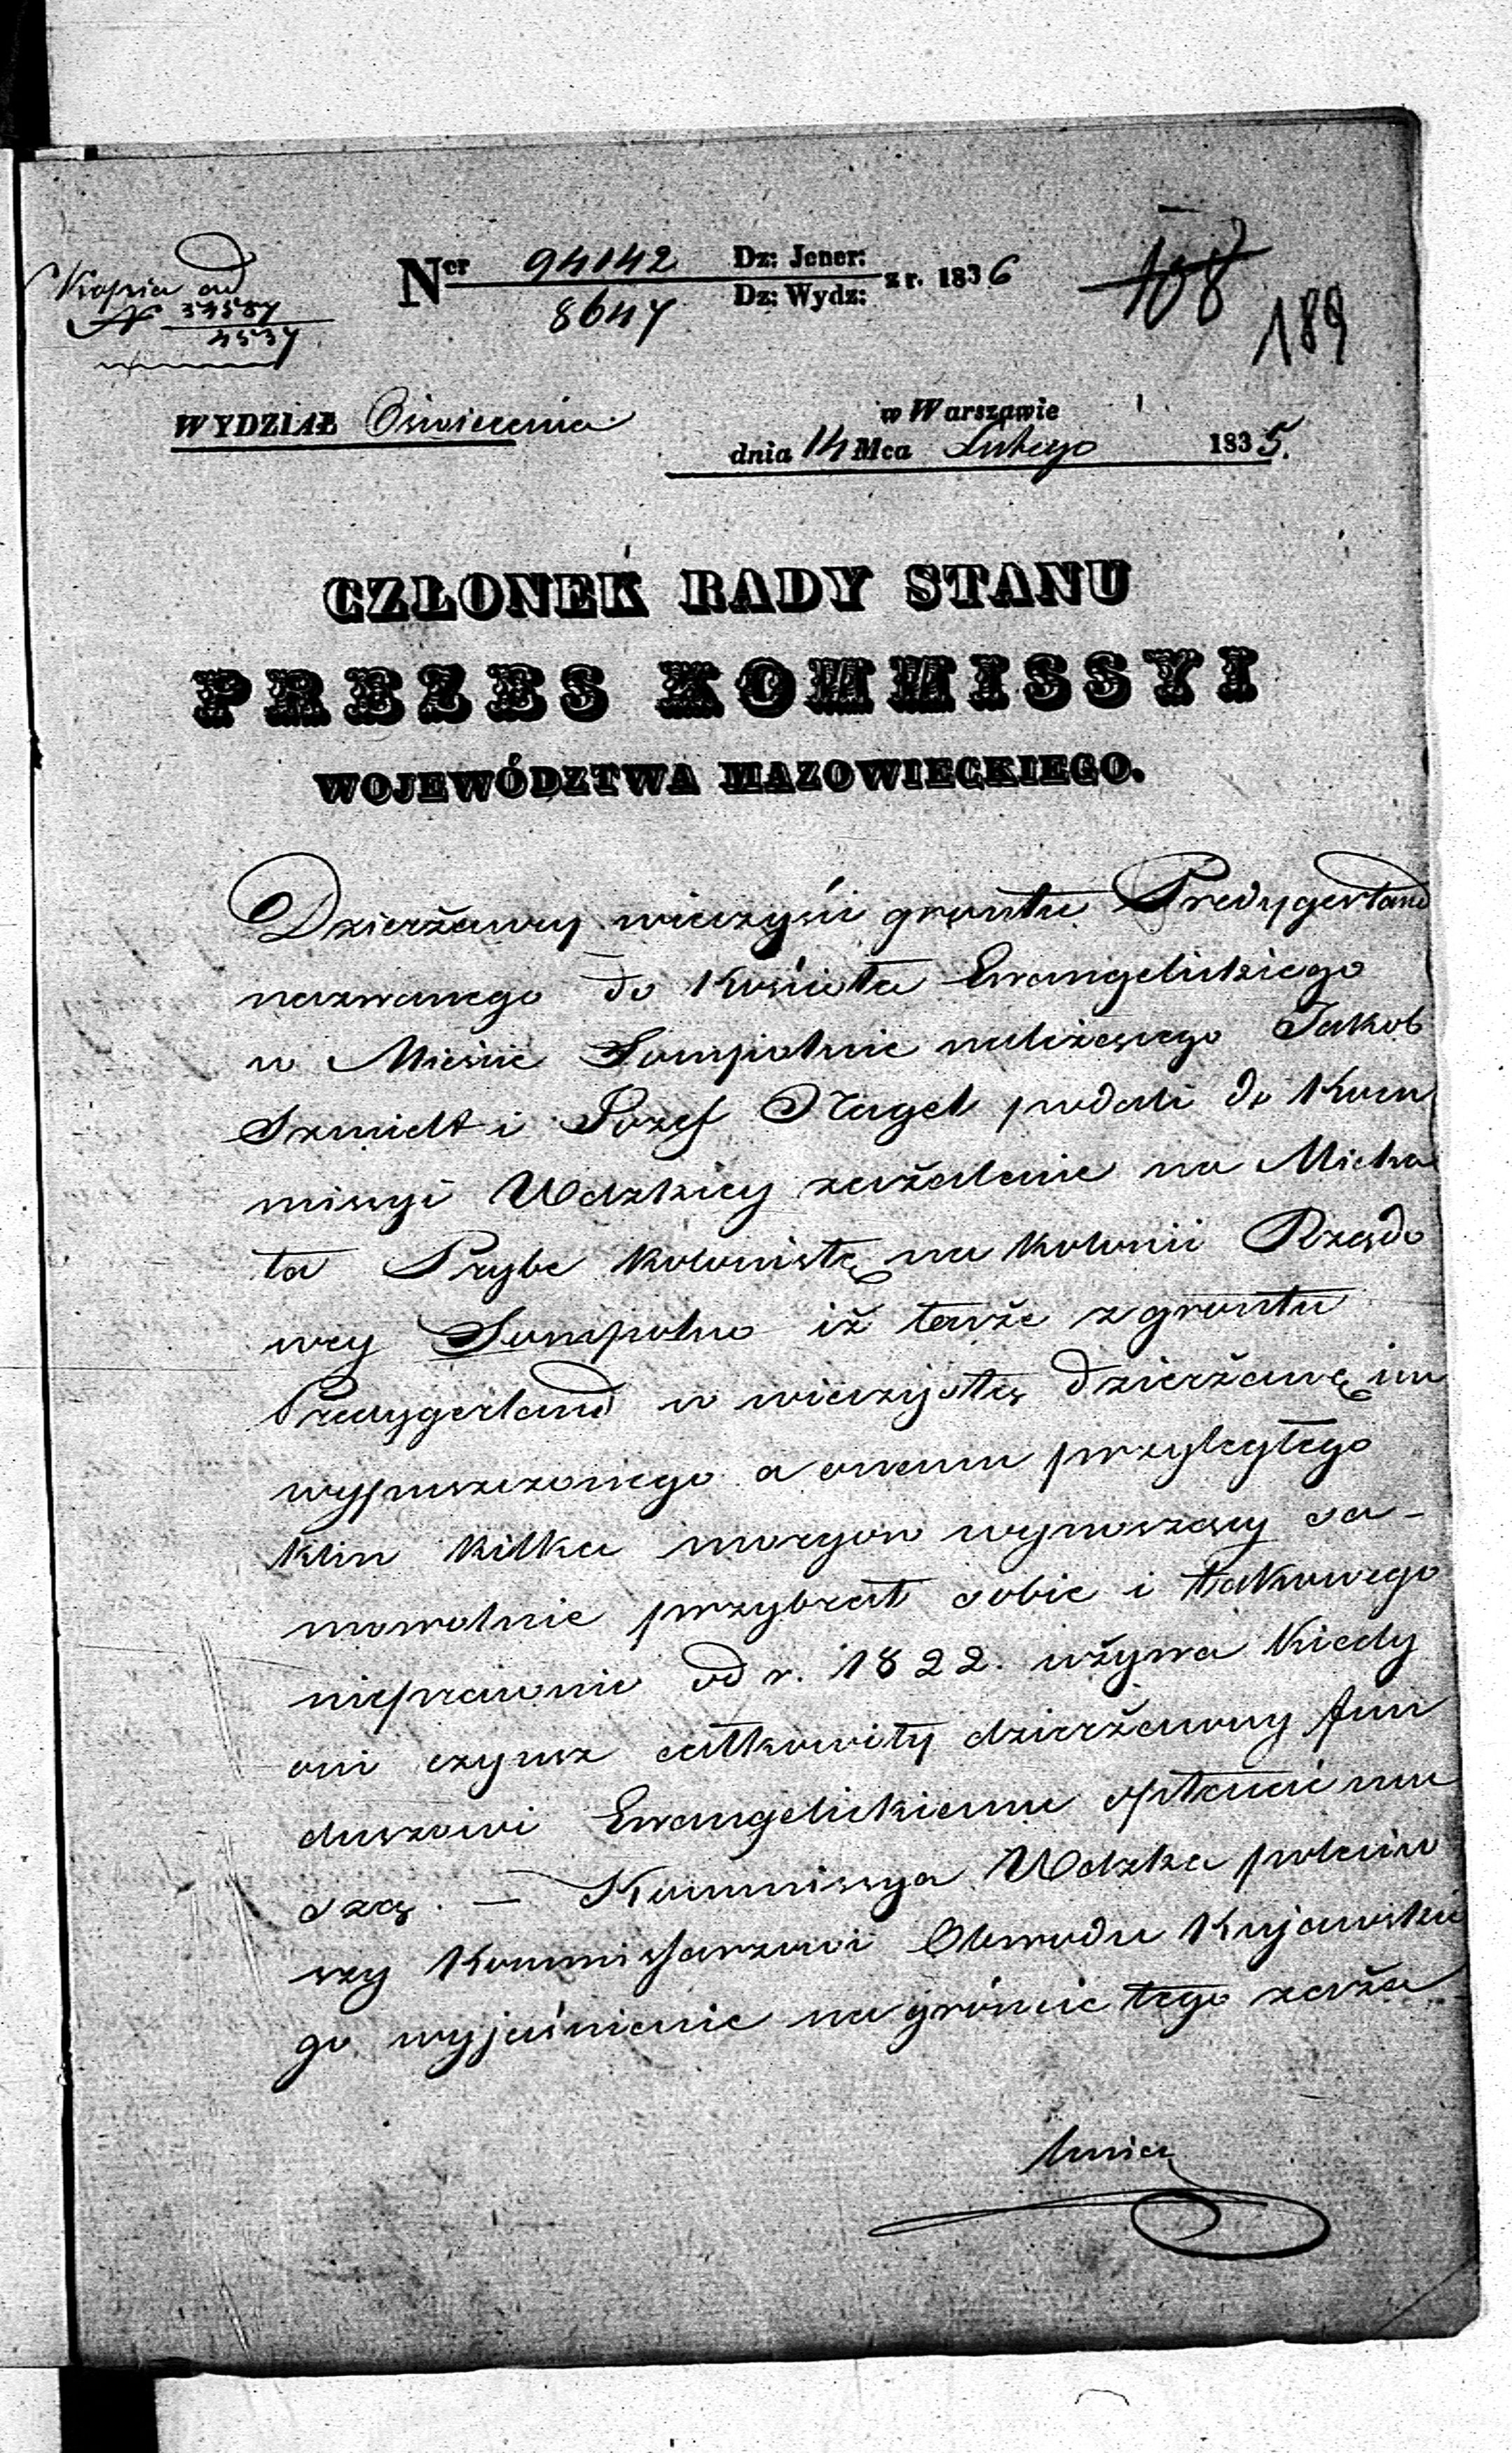 Kopia ad
N 37587
4537
Ner 94142 Dz: Jener: z r. 1836
8647 Dz: Wydz:
108
189
WYDZIAŁ Oswiecenia
w Warszawie
dnia 14 Mca Lutego 1835.
CZŁONEK RADY STANU
PREZES KOMMISSYI
WOJEWÓDZTWA MAZOWIECKIEGO.
Dzierżawcy wieczyści gruntu Predygerland
nazwanego do Kościoła Ewangelickiego
w Mieście Sompolnie należącego Jakob
Szmidt i Jozef Nagel podali do Kom
missyi Wdzkiey zażalenie na Micha
ła Prybe kolonistę na kolonii Rządo
wey Sompolno iż tenże z gruntu
Predygerland w wieczystą dzierżawę im
wypuszczonego a onemu przyległego
klin kilka morgow wynoszący sa-
mowolnie przybrał sobie i takowego
nieprawnie od r. 1822. używa kiedy
oni czynsz całkowity dzierżawny fun
duszowi Ewangelickiemu opłacać mu
szą. — Kommissya Wdzka poleciw
szy Kommissarzowi Obwodu Kujawskie
go wyjaśnienie na gróncie tego zaża
lenia